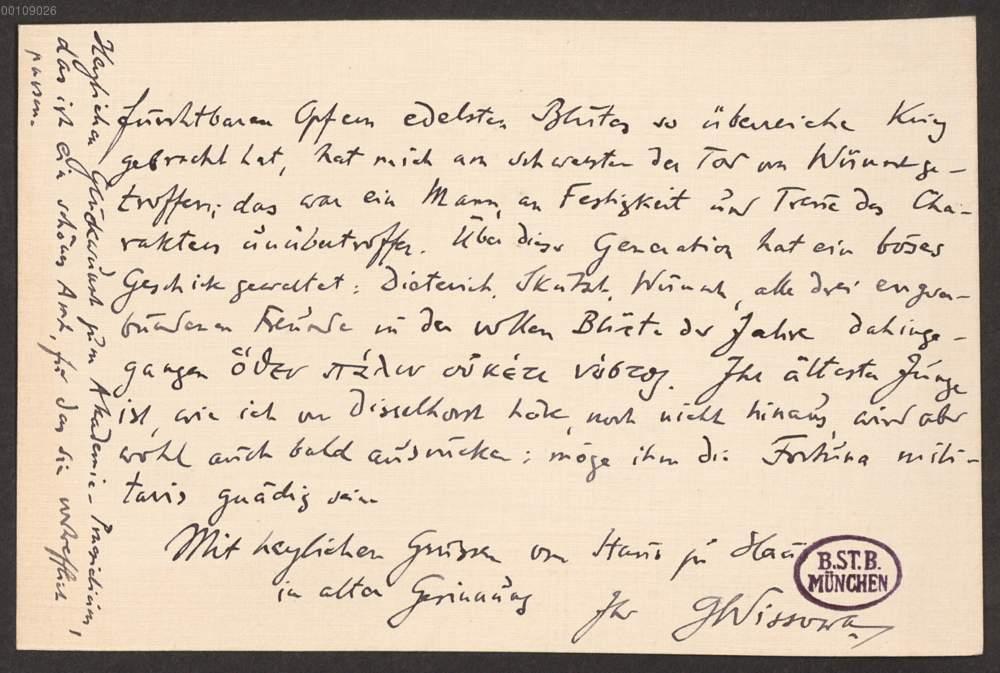 00109026
furchtbaren Opfern edelsten Blutes so überreiche Krieg
gebracht hat, hat mich am schwersten der Tod von Wünsch ge-
troffen; das war ein Mann, an Festigkeit und Treue des Cha-
rakters unübertroffen. Über dieser Generation hat ein böses
Geschick gewaltet: Dieterich, Skutsch, Wünsch, alle drei engver-
bundenen Freunde in der vollen Blüte der Jahre dahinge-
gangen ὅθεν πάλιν οὐκέτι νόστος. Ihr ältester Junge
ist, wie ich von Disselhorst höre, noch nicht hinaus, wird aber
wohl auch bald ausrücken; möge ihm die Fortuna mili-
taris gnädig sein.
Mit herzlichen Grüssen von Haus zu Haus
in alter Gesinnung
Ihr GWissowa
B.ST.B.
MÜNCHEN
Herzlichen Glückwunsch zum Akademie-Praesidium,
das ist ein schönes Amt, für das Sie vortrefflich
passen.